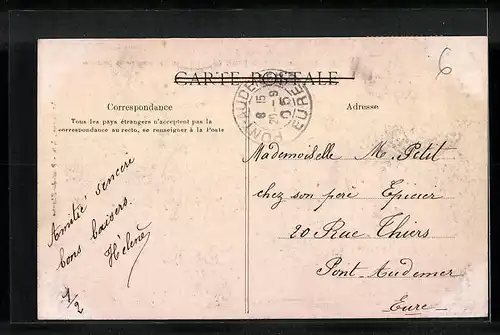 6
CARTE POSTALE
PONT-AUDEMER
8 15
21 -9
05
EURE
Correspondance
Adresse
Tous les pays étrangers n'acceptent pas la
correspondance au recto, se renseigner à la Poste
Mademoiselle M. Petit
chez son père Epicier
20 Rue Thiers
Pont Audemer
Eure
Amitié sincère
bons baisers.
Hélène